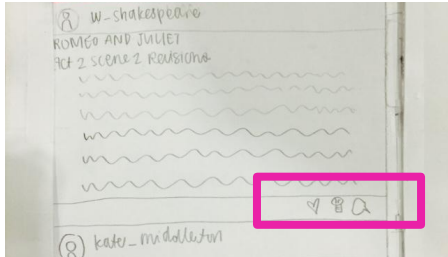 w-shakespeare
ROMEO AND JULIET
Act 2 Scene 2 Revisions
kate_middleton